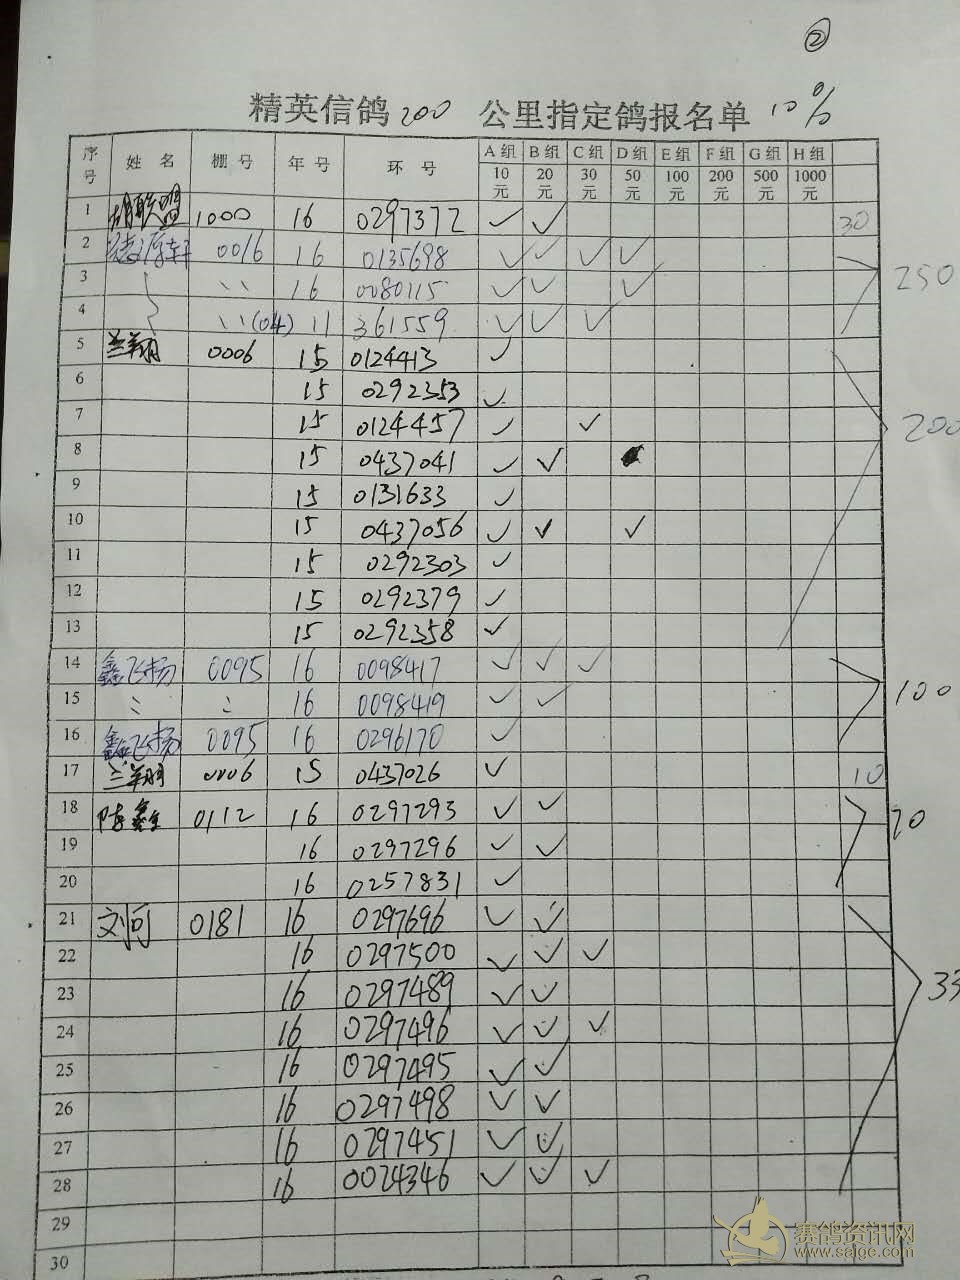 ②
精英信鸽200 公里指定鸽报名单 10%
序号 姓 名 棚 号 年 号 环 号 A组 B组 C组 D组 E组 F组 G组 H组
10元 20元 30元 50元 100元 200元 500元 1000元
1 胡联盟 1000 16 0297372 ✓ ✓ 30
2 德源轩 0016 16 0135698 ✓ ✓ ✓ ✓
3 〃 16 0080115 ✓ ✓ ✓ 250
4 〃 (04) 11 361559 ✓ ✓ ✓
5 兰翔 0006 15 0124413 ✓
6 15 0292353 ✓
7 15 0124457 ✓ ✓ 200
8 15 0437041 ✓ ✓
9 15 0131633 ✓
10 15 0437056 ✓ ✓ ✓
11 15 0292303 ✓
12 15 0292379 ✓
13 15 0292358 ✓
14 鑫飞扬 0095 16 0098417 ✓ ✓ ✓
15 〃 〃 16 0098419 ✓ ✓ 100
16 鑫飞扬 0095 16 0296170 ✓
17 兰翔 0006 15 0437026 ✓ 10
18 陈鑫 0112 16 0297293 ✓ ✓ 70
19 16 0297296 ✓ ✓
20 16 0257831 ✓
21 刘河 0181 16 0297696 ✓ ✓
22 16 0297500 ✓ ✓ ✓
23 16 0297489 ✓ ✓ 33
24 16 0297496 ✓ ✓ ✓
25 16 0297495 ✓ ✓
26 16 0297498 ✓ ✓
27 16 0297451 ✓ ✓
28 16 0024346 ✓ ✓ ✓
29
30
赛鸽资讯网
www.saigc.com